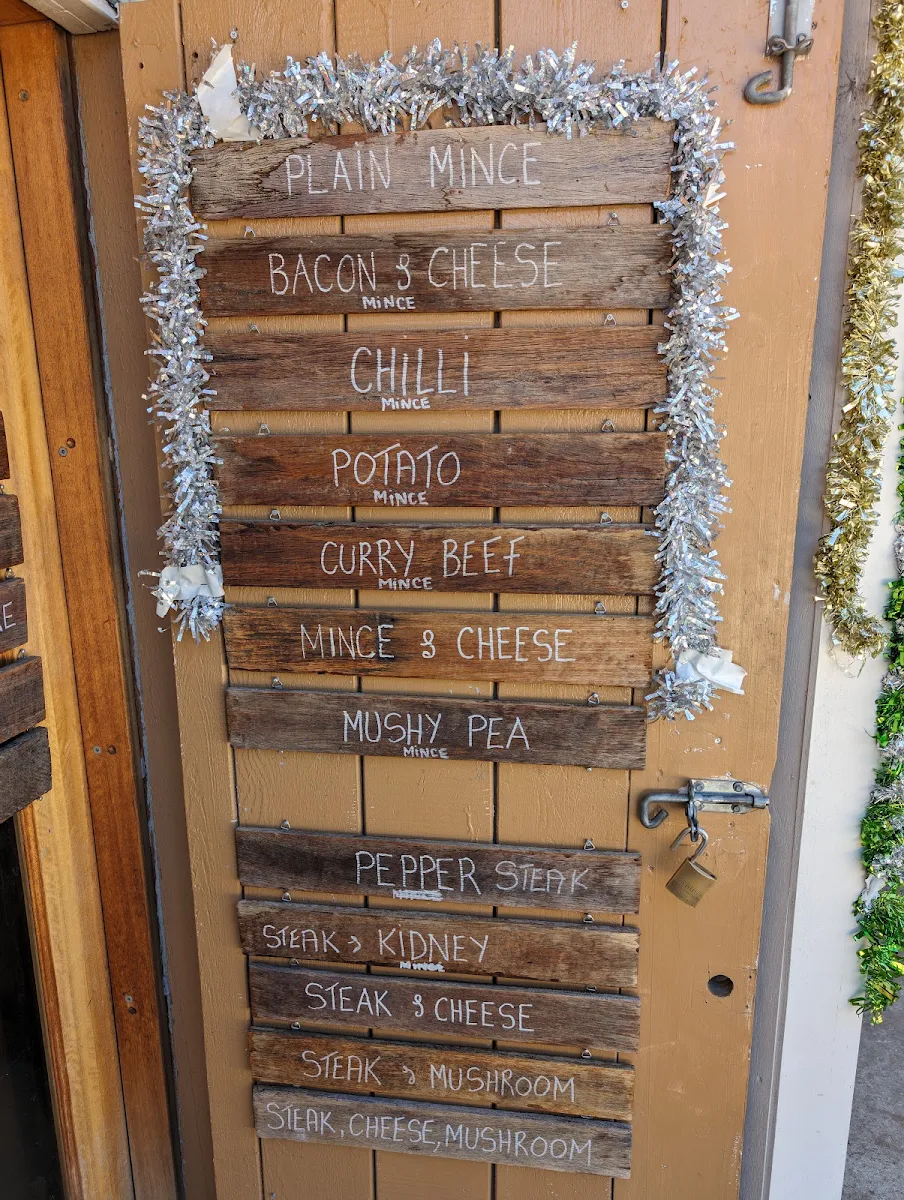 PLAIN MINCE
BACON & CHEESE
MINCE
CHILLI
MINCE
POTATO
MINCE
CURRY BEEF
MINCE
MINCE & CHEESE
MUSHY PEA
MINCE
PEPPER STEAK
STEAK & KIDNEY
MINCE
STEAK & CHEESE
STEAK & MUSHROOM
STEAK, CHEESE, MUSHROOM